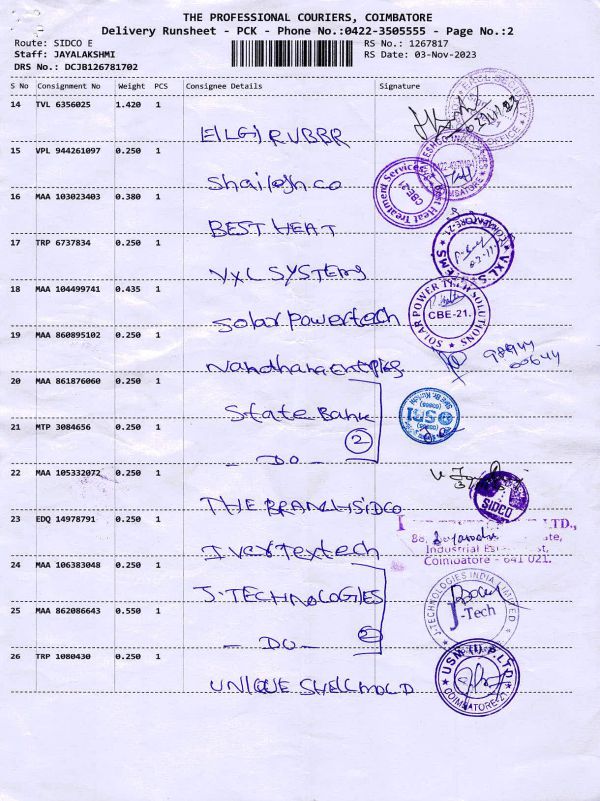 THE PROFESSIONAL COURIERS, COIMBATORE
Delivery Runsheet - PCK - Phone No.:0422-3505555 - Page No.:2
Route: SIDCO E
RS No.: 1267817
Staff: JAYALAKSHMI
RS Date: 03-Nov-2023
DRS No.: DCJB126781702
S No Consignment No Weight PCS Consignee Details Signature
14 TVL 6356025 1.420 1
ELGI RUBBR
15 VPL 944261097 0.250 1
Shailesh co
16 MAA 103023403 0.380 1
BEST HEAT
17 TRP 6737834 0.250 1
VXL SYSTEMS
18 MAA 104499741 0.435 1
Solar Powertech
CBE-21.
19 MAA 860895102 0.250 1
Nandhana Entp
98944
00644
20 MAA 861876060 0.250 1
State Bank
21 MTP 3084656 0.250 1
2
- DO -
22 MAA 105332072 0.250 1
THE BRANCH SIDCO
SIDCO
23 EDQ 14978791 0.250 1
LTD.,
Industrial
Coimbatore - 641 021.
24 MAA 106383048 0.250 1
J-TECHNOLOGIES
J-TECHNOLOGIES INDIA LIMITED
J-Tech
25 MAA 862086643 0.550 1
2
- DO -
26 TRP 1080430 0.250 1
UNIQUE SHELLMOLD
USM (I) P.LTD
COIMBATORE-21